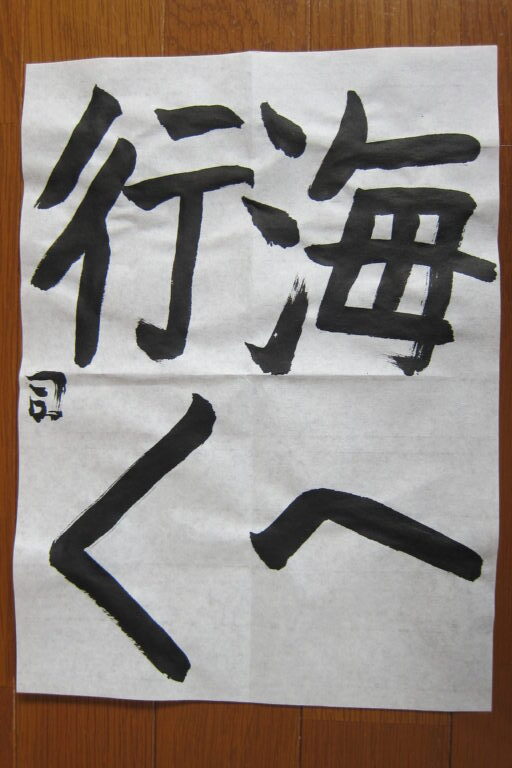 海へ
行く
司